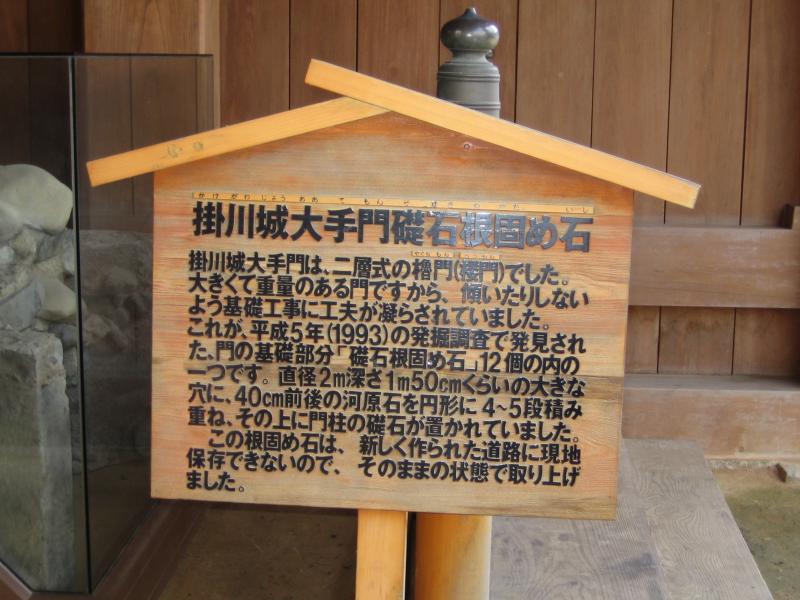 かけがわじょうおおてもんそせきねがためいし
掛川城大手門礎石根固め石
掛川城大手門は、二層式の櫓門(楼門)でした。
大きくて重量のある門ですから、傾いたりしない
よう基礎工事に工夫が凝らされていました。
これが、平成5年(1993)の発掘調査で発見され
た、門の基礎部分「礎石根固め石」12個の内の
一つです。直径2m深さ1m50cmくらいの大きな
穴に、40cm前後の河原石を円形に4~5段積み
重ね、その上に門柱の礎石が置かれていました。
この根固め石は、新しく作られた道路に現地
保存できないので、そのままの状態で取り上げ
ました。